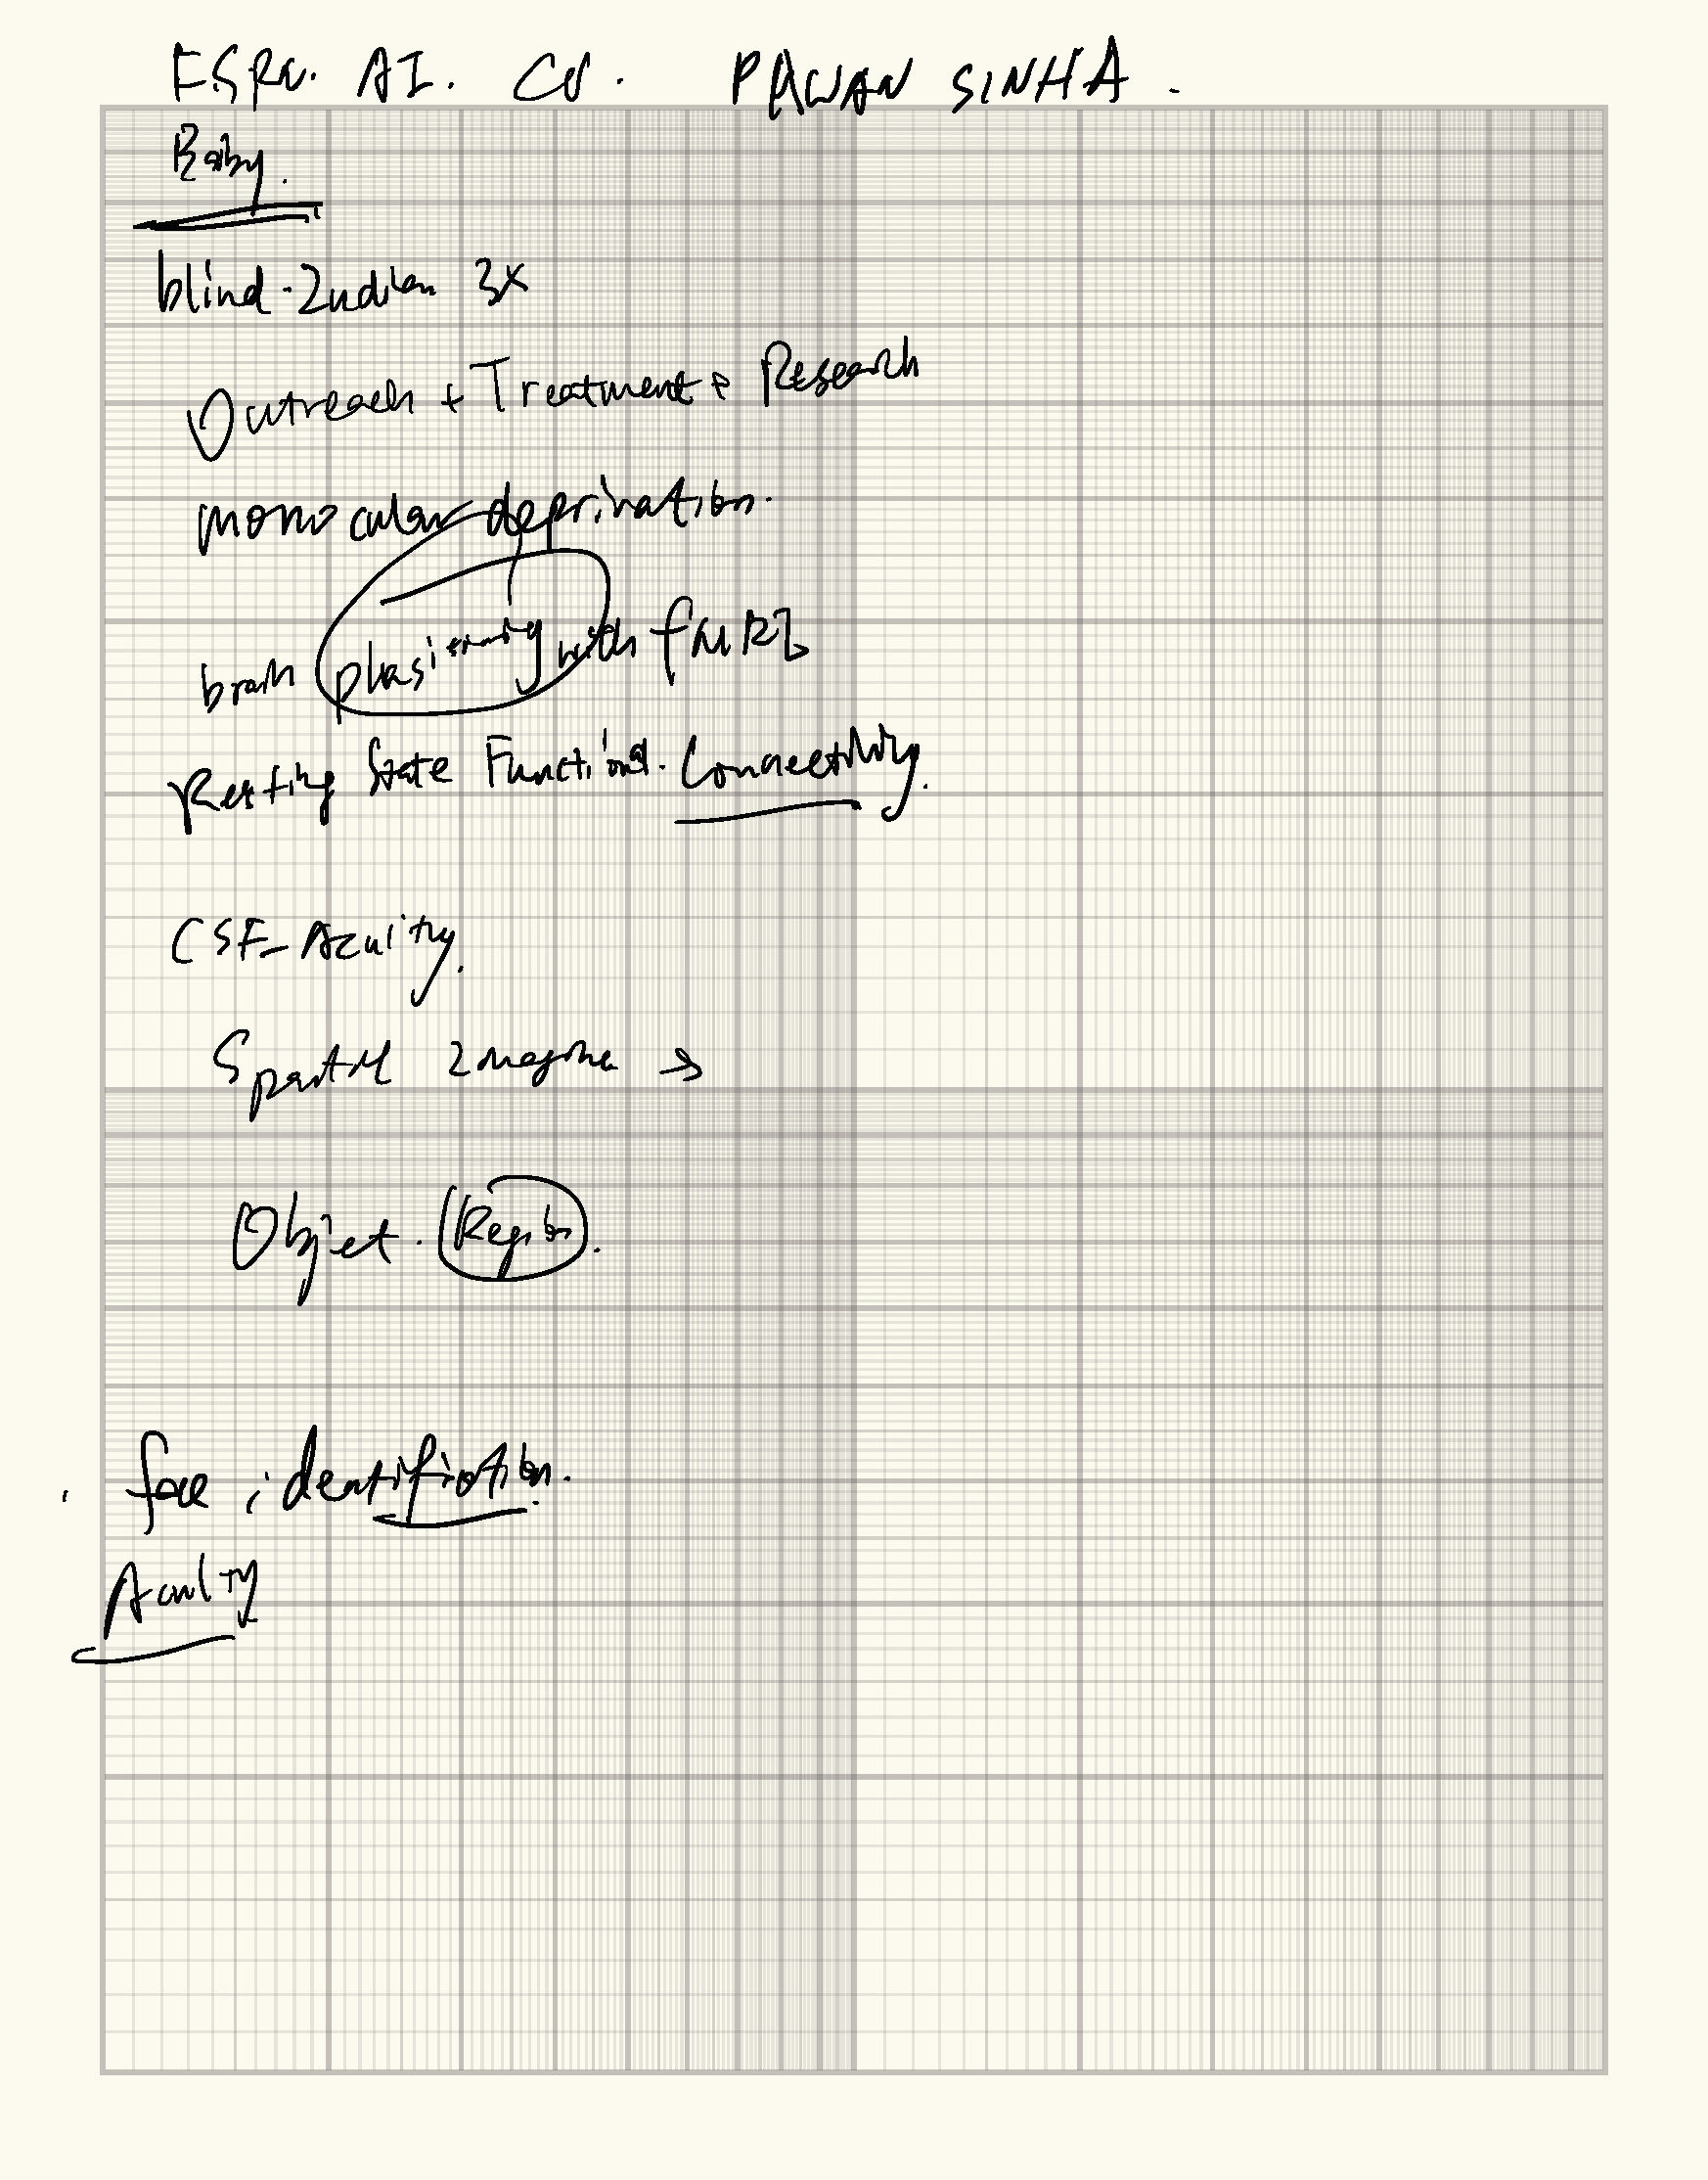 AI. CV. PAWAN SINHA.
Baby.
blind. Indian 3x
Outreach + Treatment + Research
monocular deprivation.
brain with fMRI
Resting State Functional. Connectivity.
CSF- Acuity.
Spatial
Object.
face identification.
Acuity